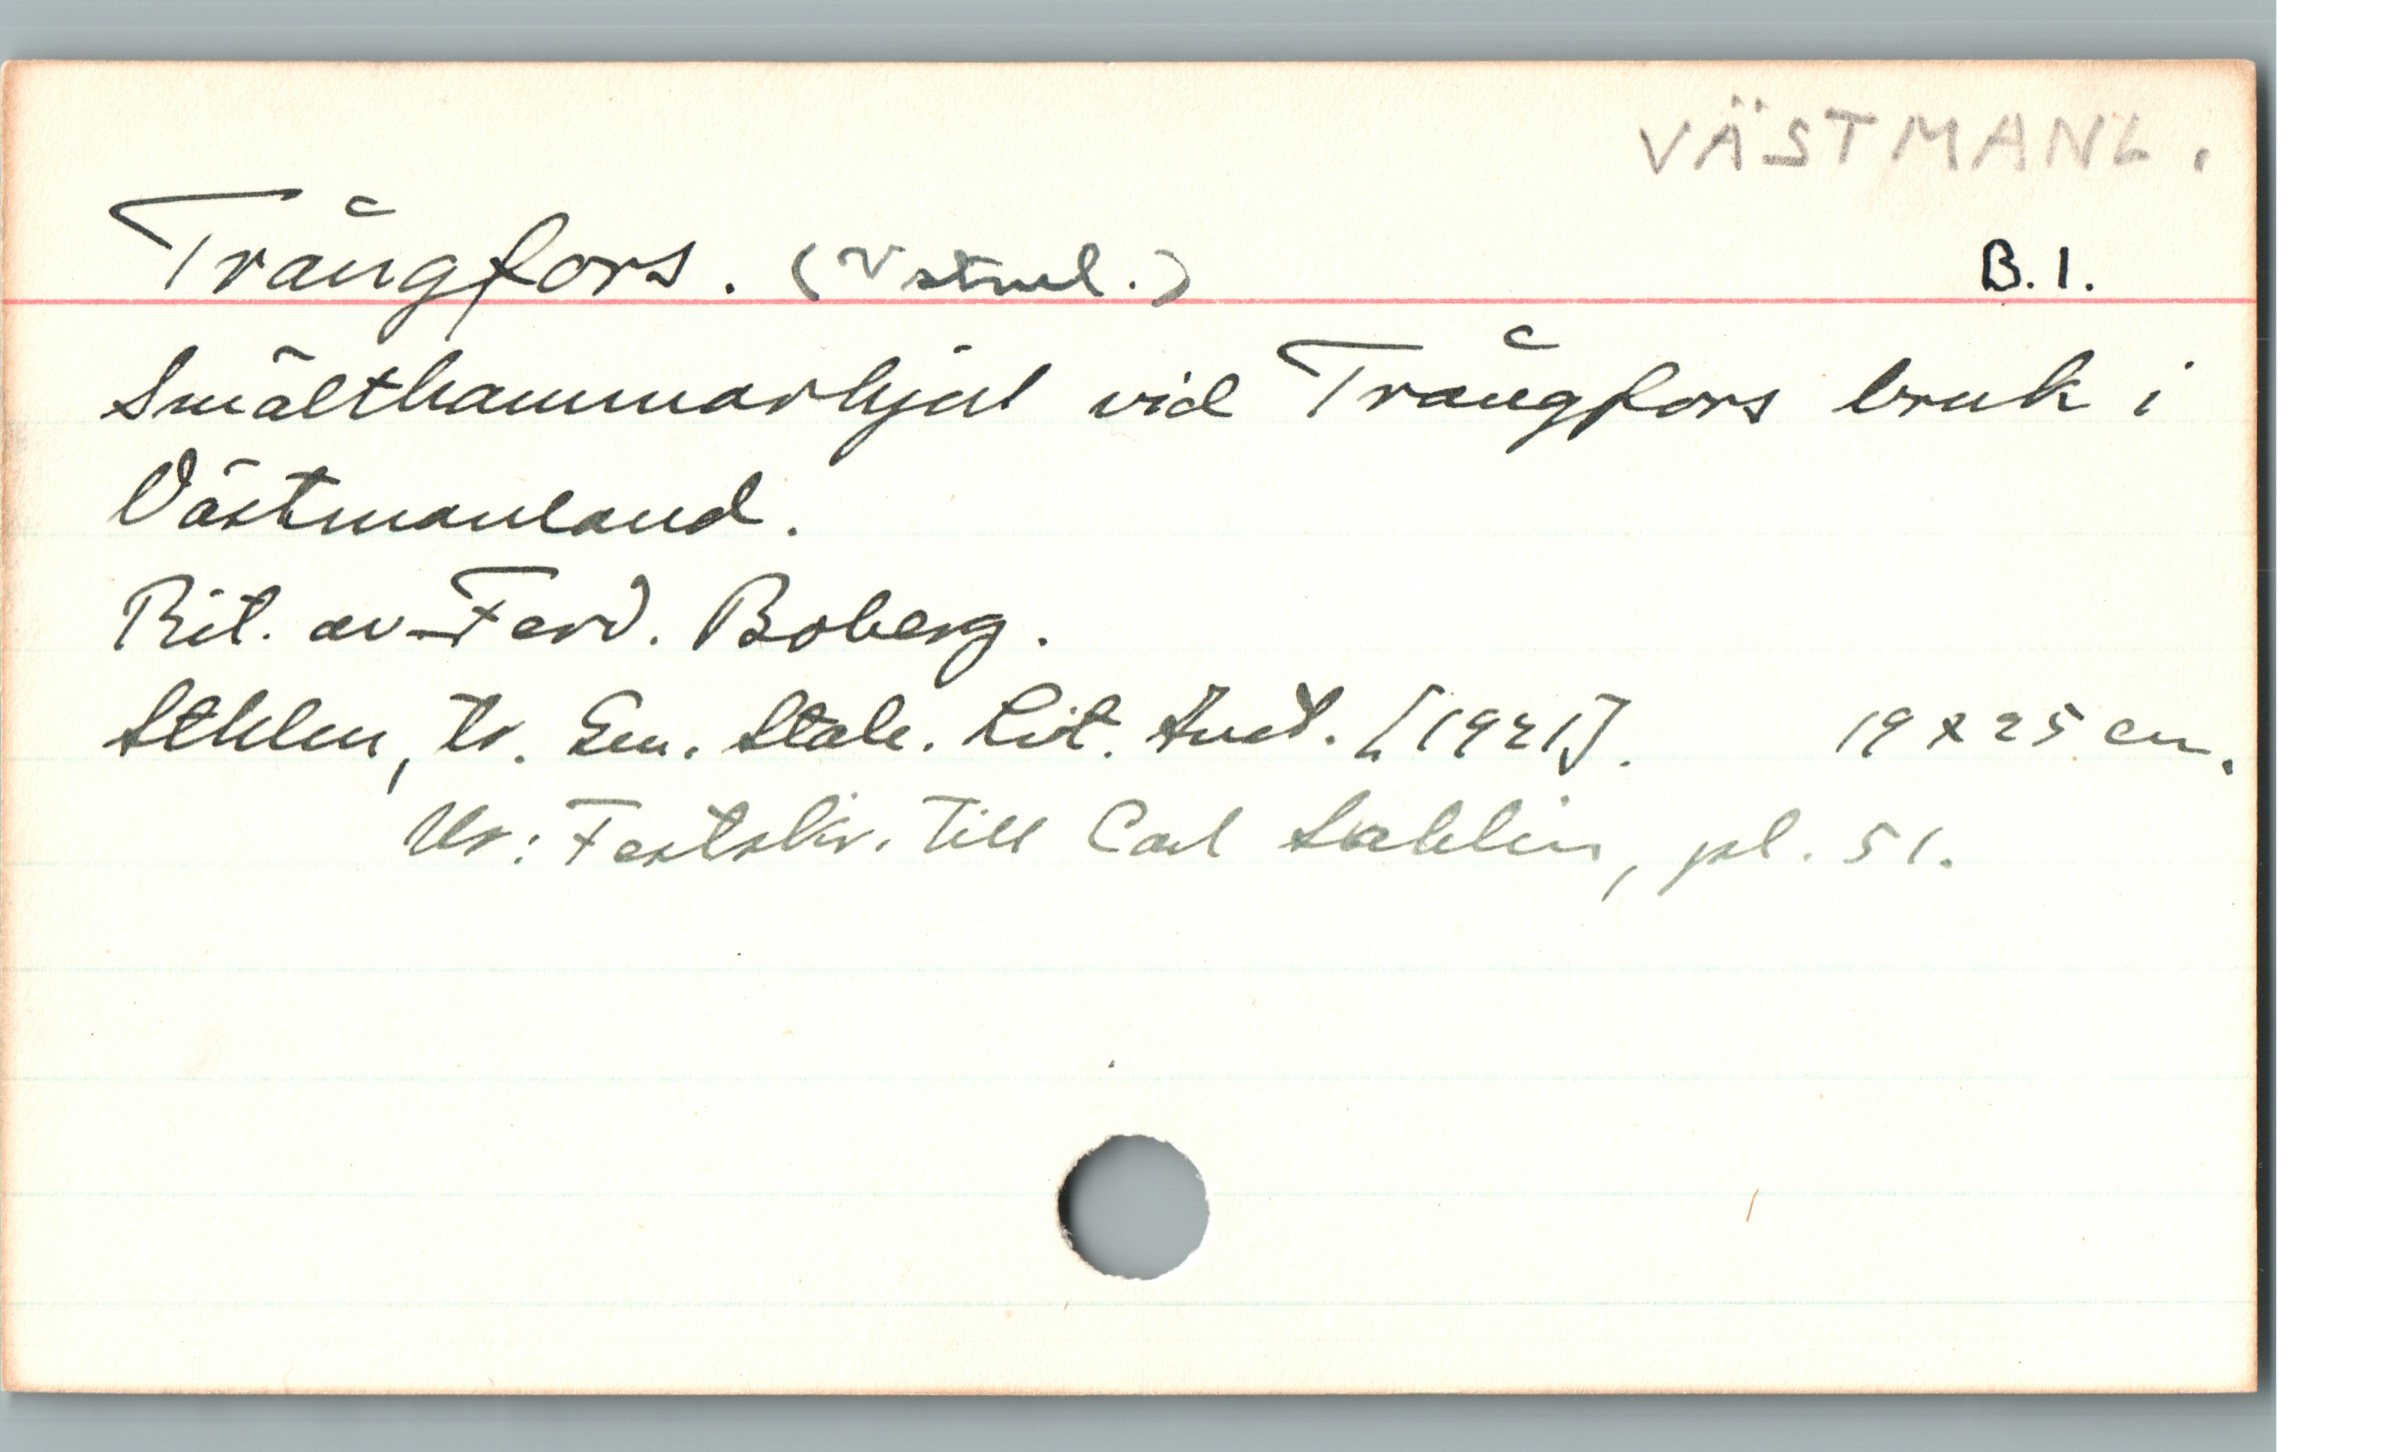 VÄSTMANL.
Trångfors. (Vstml.) B.1.
Smälthammarhjul vid Trångfors bruk i
Västmanland.
Rit. av Ferd. Boberg.
Sthlm, tr. Gen. Stab. Lit. Anst. [1921]. 19 x 25 cm.
Ur: Festskr. till Carl Sahlin, pl. 51.